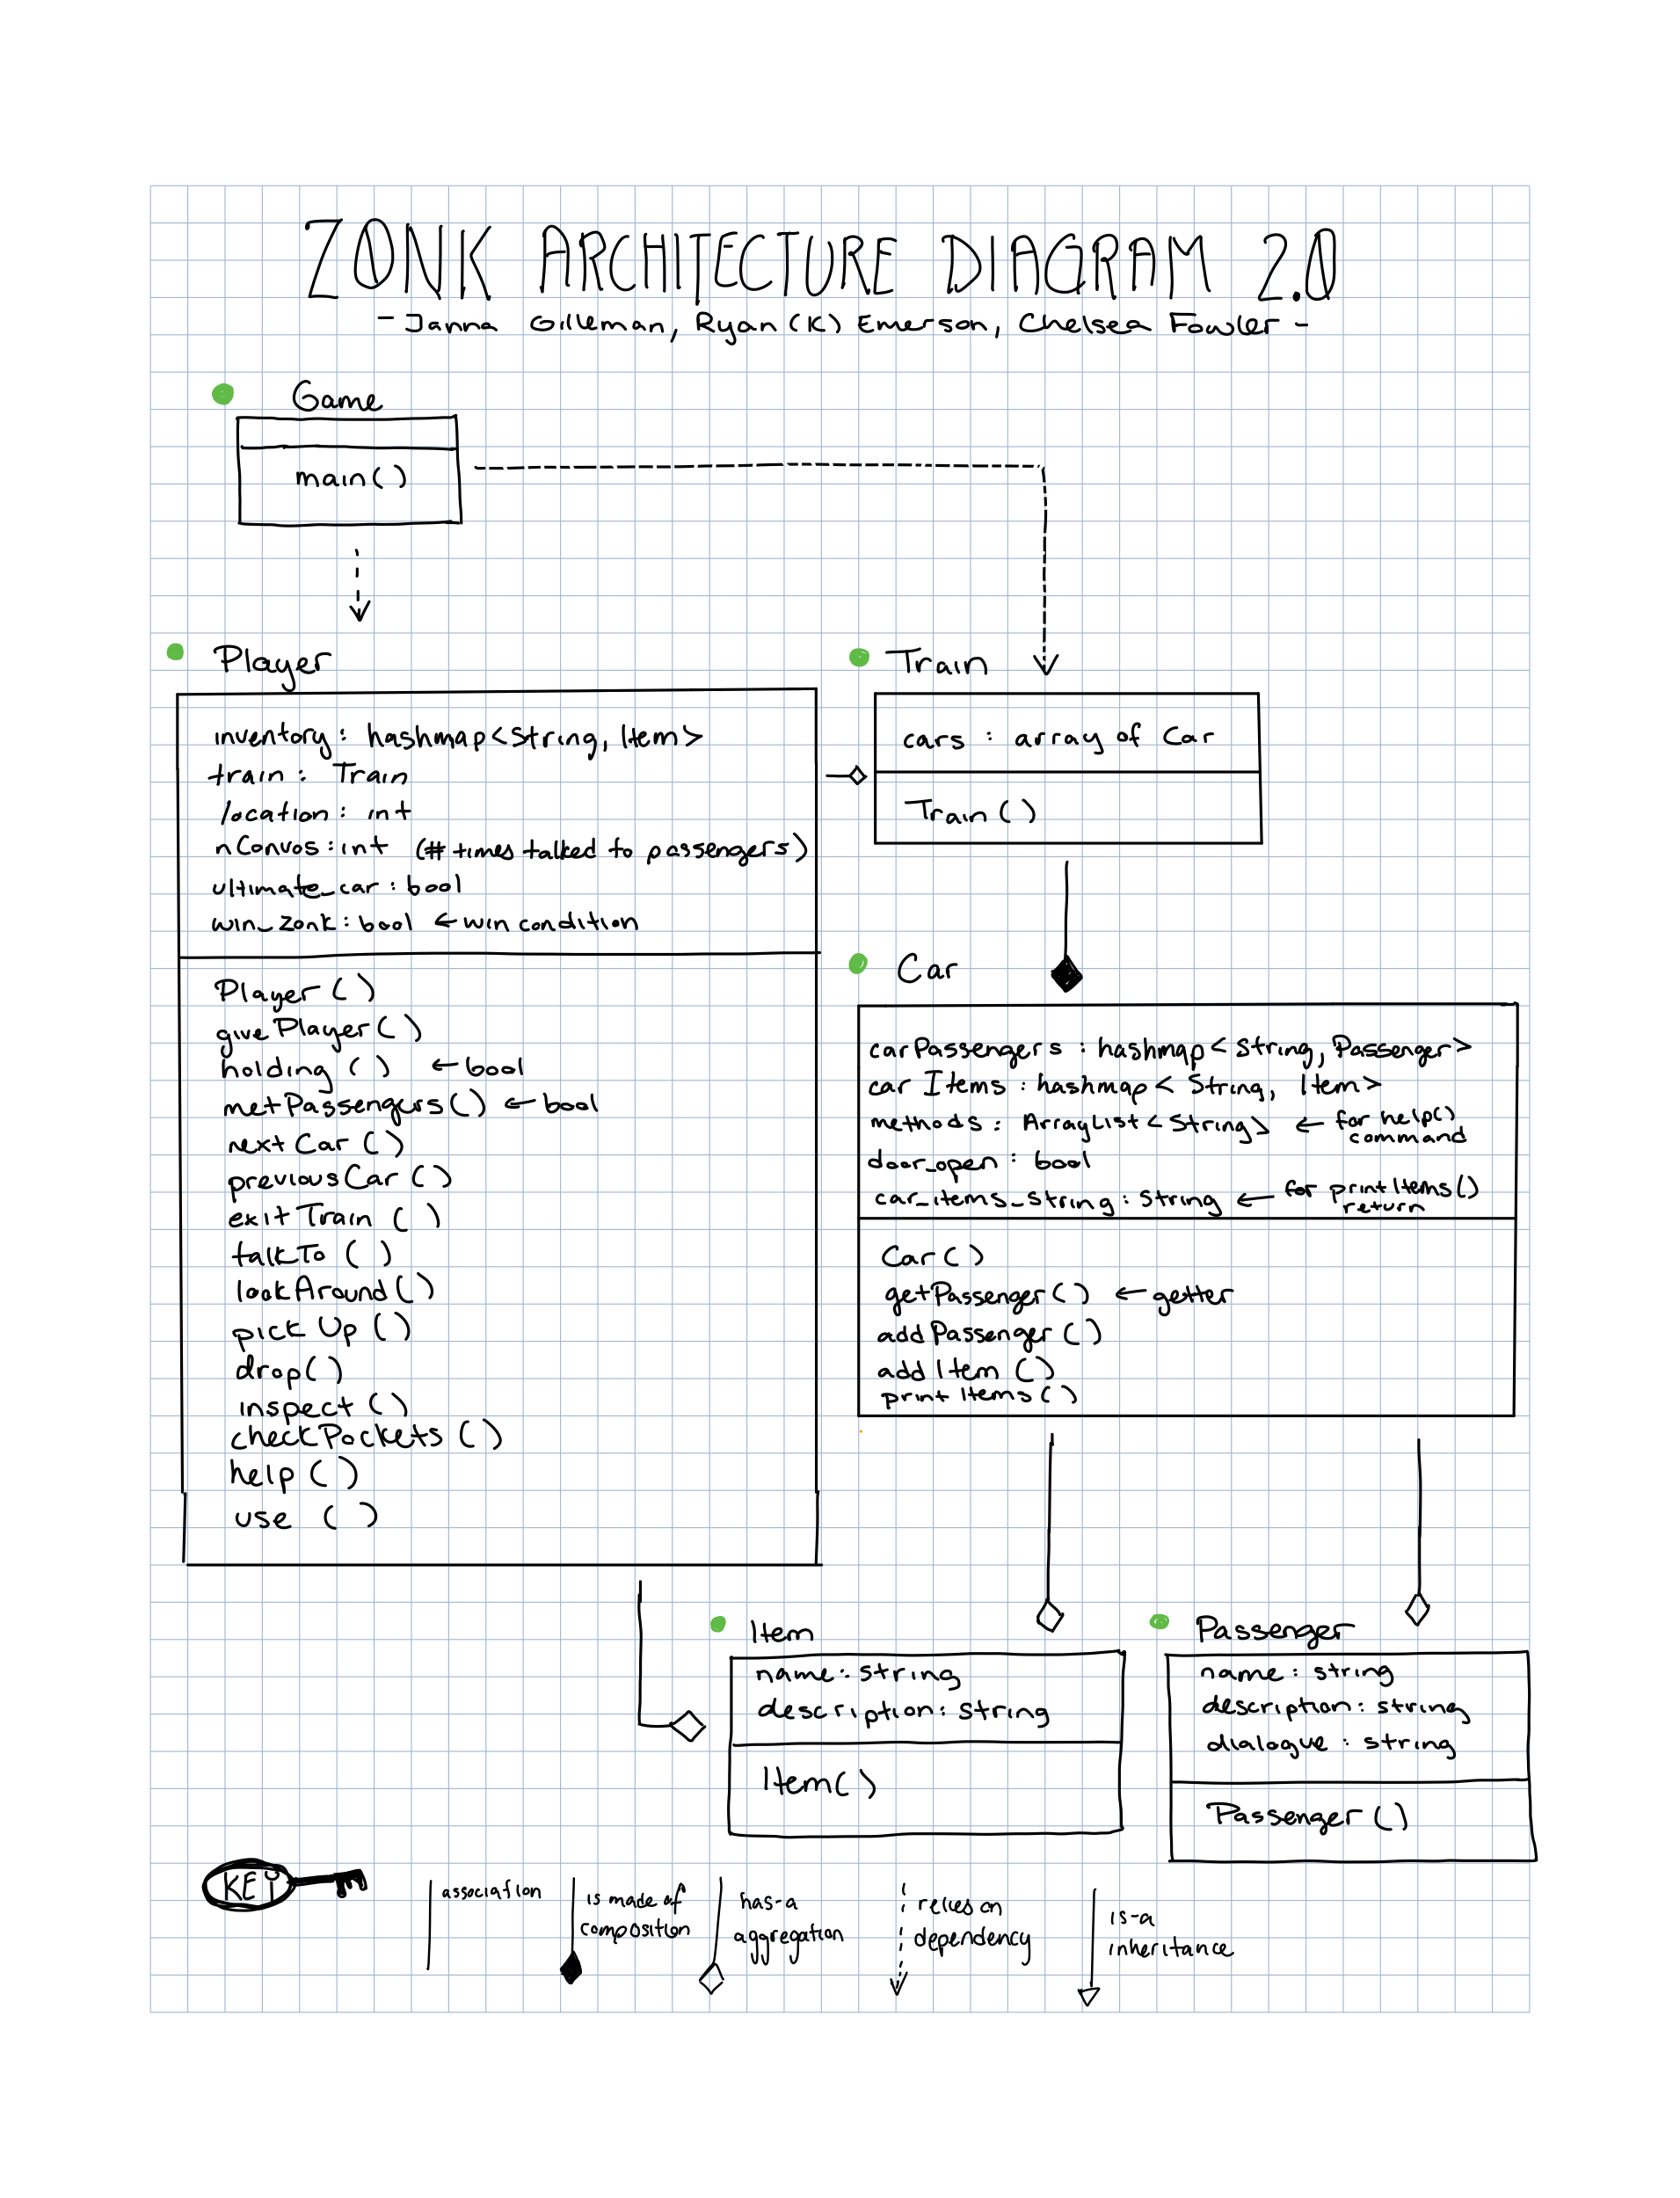 ZONK ARCHITECTURE DIAGRAM 2.0
- Janna Gilleman, Ryan (K) Emerson, Chelsea Fowler -
Game
main()
Player
inventory: hashmap<String, Item>
train: Train
location: int
nConvos: int (# times talked to passengers)
ultimate_car: bool
win_zonk: bool ← win condition
Player()
givePlayer()
holding() ← bool
metPassengers() ← bool
nextCar()
previousCar()
exitTrain()
talkTo()
lookAround()
pickUp()
drop()
inspect()
checkPockets()
help()
use()
Train
cars: array of Car
Train()
Car
carPassengers: hashmap<String, Passenger>
carItems: hashmap<String, Item>
methods: ArrayList<String> ← for help()
command
door_open: bool
car_items_string: String ← for printItems()
return
Car()
getPassenger() ← getter
addPassenger()
addItem()
printItems()
Item
name: string
description: string
Item()
Passenger
name: string
description: string
dialogue: string
Passenger()
KEY
association
is made of
composition
has-a
aggregation
relies on
dependency
is-a
inheritance